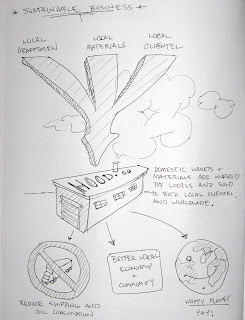 * SUSTAINABLE BUSINESS *
LOCAL
CRAFTSMEN
LOCAL
MATERIALS
LOCAL
CLIENTEL
DOMESTIC WOODS +
MATERIALS ARE WORKED
BY LOCALS AND SOLD
TO BOTH LOCAL CLIENTEL,
AND WORLDWIDE.
WOOD! CO
REDUCE SHIPPING AND
OIL CONSUMPTION
BETTER LOCAL
ECONOMY
+
COMMUNITY
HAPPY PLANET
YAY!